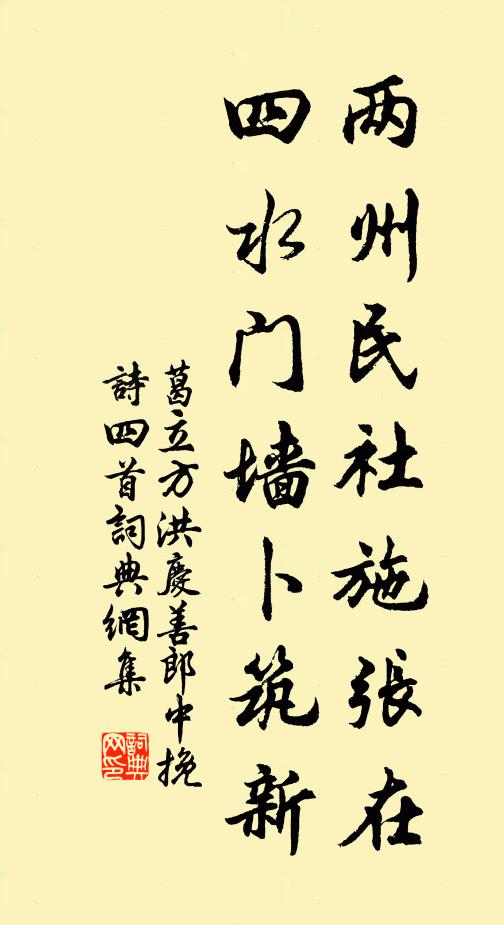 两州民社施張在
四水门墙卜筑新
葛立方洪慶善郎中挽
詩四首詞典網集
詞典
网印